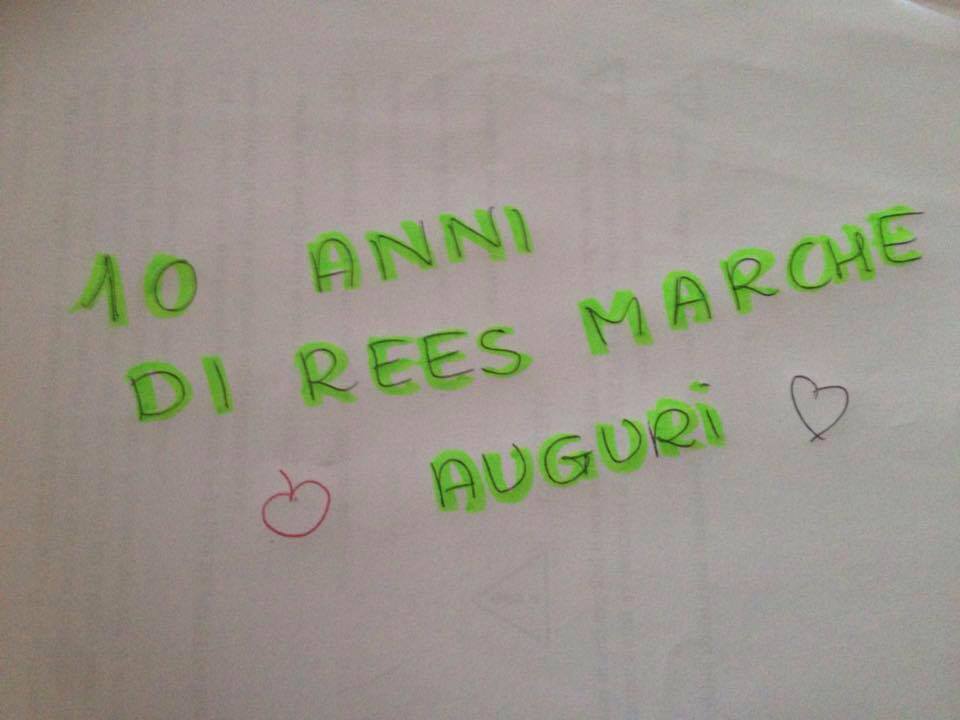 10 ANNI
DI REES MARCHE
AUGURI